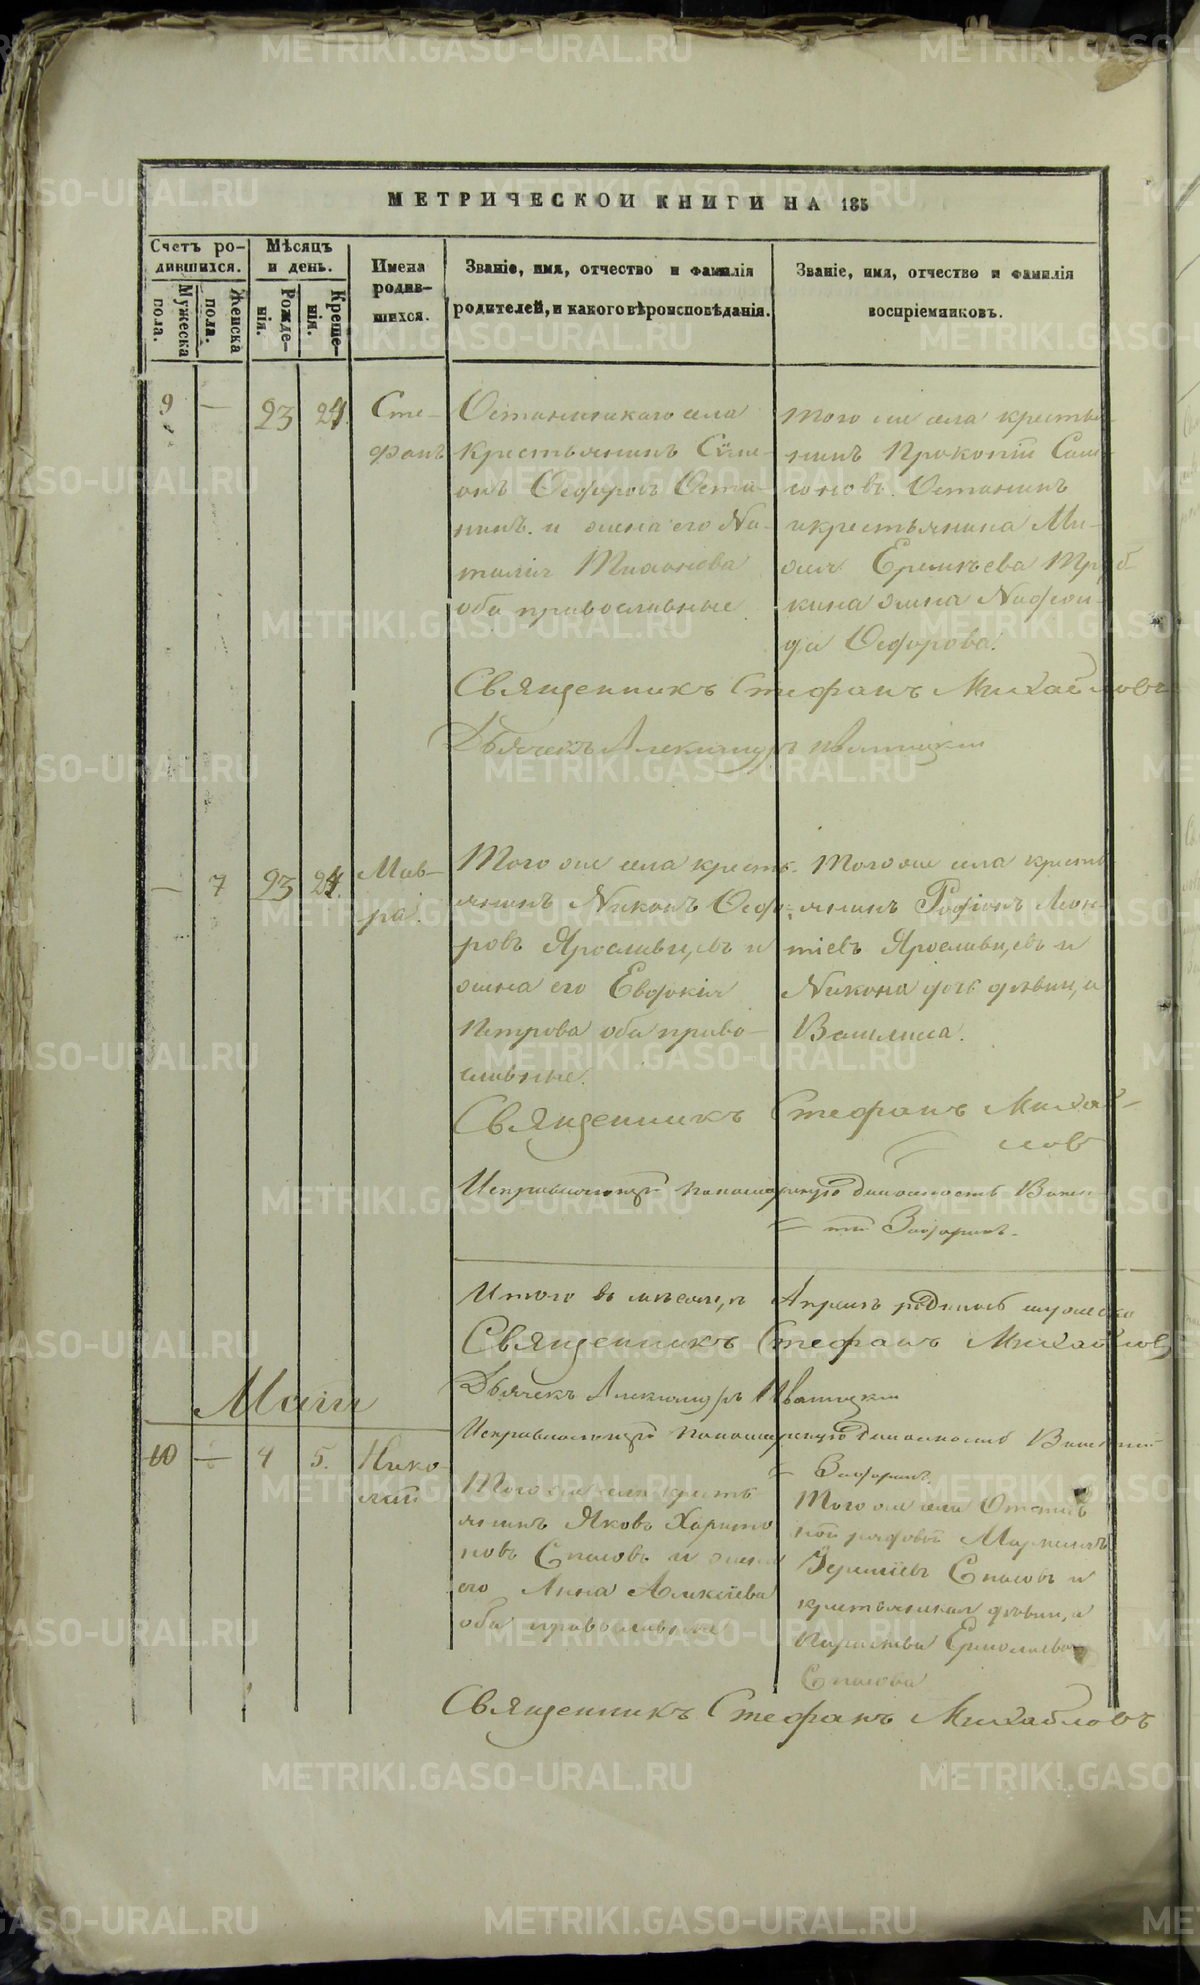 МЕТРИЧЕСКОЙ КНИГИ НА 185
Счетъ ро-
дившихся.
Мѣсяцъ
и день.
Имена
родив-
шихся.
Званіе, имя, отчество и фамилія
родителей, и какого вѣроисповѣданія.
Званіе, имя, отчество и фамилія
воспріемниковъ.
Мужеска
пола.
Женска
пола.
Рожде-
нія.
Креще-
нія.
9 — 23 24
Сте-
фанъ
Останинскаго села
крестьянинъ Симе-
онъ Ѳедоровъ Оста-
нинъ и жена его На-
талія Тихонова
оба православные
того же села крестья-
нинъ Прокопій Сам-
соновъ Останинъ
и крестьянина Ми-
кина жена
да Ѳедорова.
Священникъ Стефанъ Михайловъ
Дьячекъ Александръ Иваницкій
— 7 23 24
Мав-
ра.
Того же села кресть-
янинъ Никонъ Ѳедо-
ровъ Ярославцевъ и
жена его Евдокія
Петрова оба право-
славные.
Того же села кресть-
янинъ Родіонъ Леон-
тіевъ Ярославцевъ и
Никона дочь дѣвица
Василиса.
Священникъ Стефанъ Михай-
лов
Исправляющій пономарскую должность Викен-
тій
Итого въ мѣсяцѣ Апрелѣ родилось мужеска
Священникъ Стефанъ Михайлов
Дьячекъ Александръ Иваницкій
Исправляющій пономарскую должность Викентій
Маій
10 — 4 5.
Нико-
лай
Того же села кресть-
янинъ Яковъ Харито-
новъ Спасовъ и жена
его Анна Алексѣева
оба православные
Того же села Отстав-
ной рядовой
Спасовъ и
крестьянская дѣвица
Параскева Ермолаева
Спасова
Священникъ Стефанъ Михайловъ
METRIKI.GASO-URAL.RU